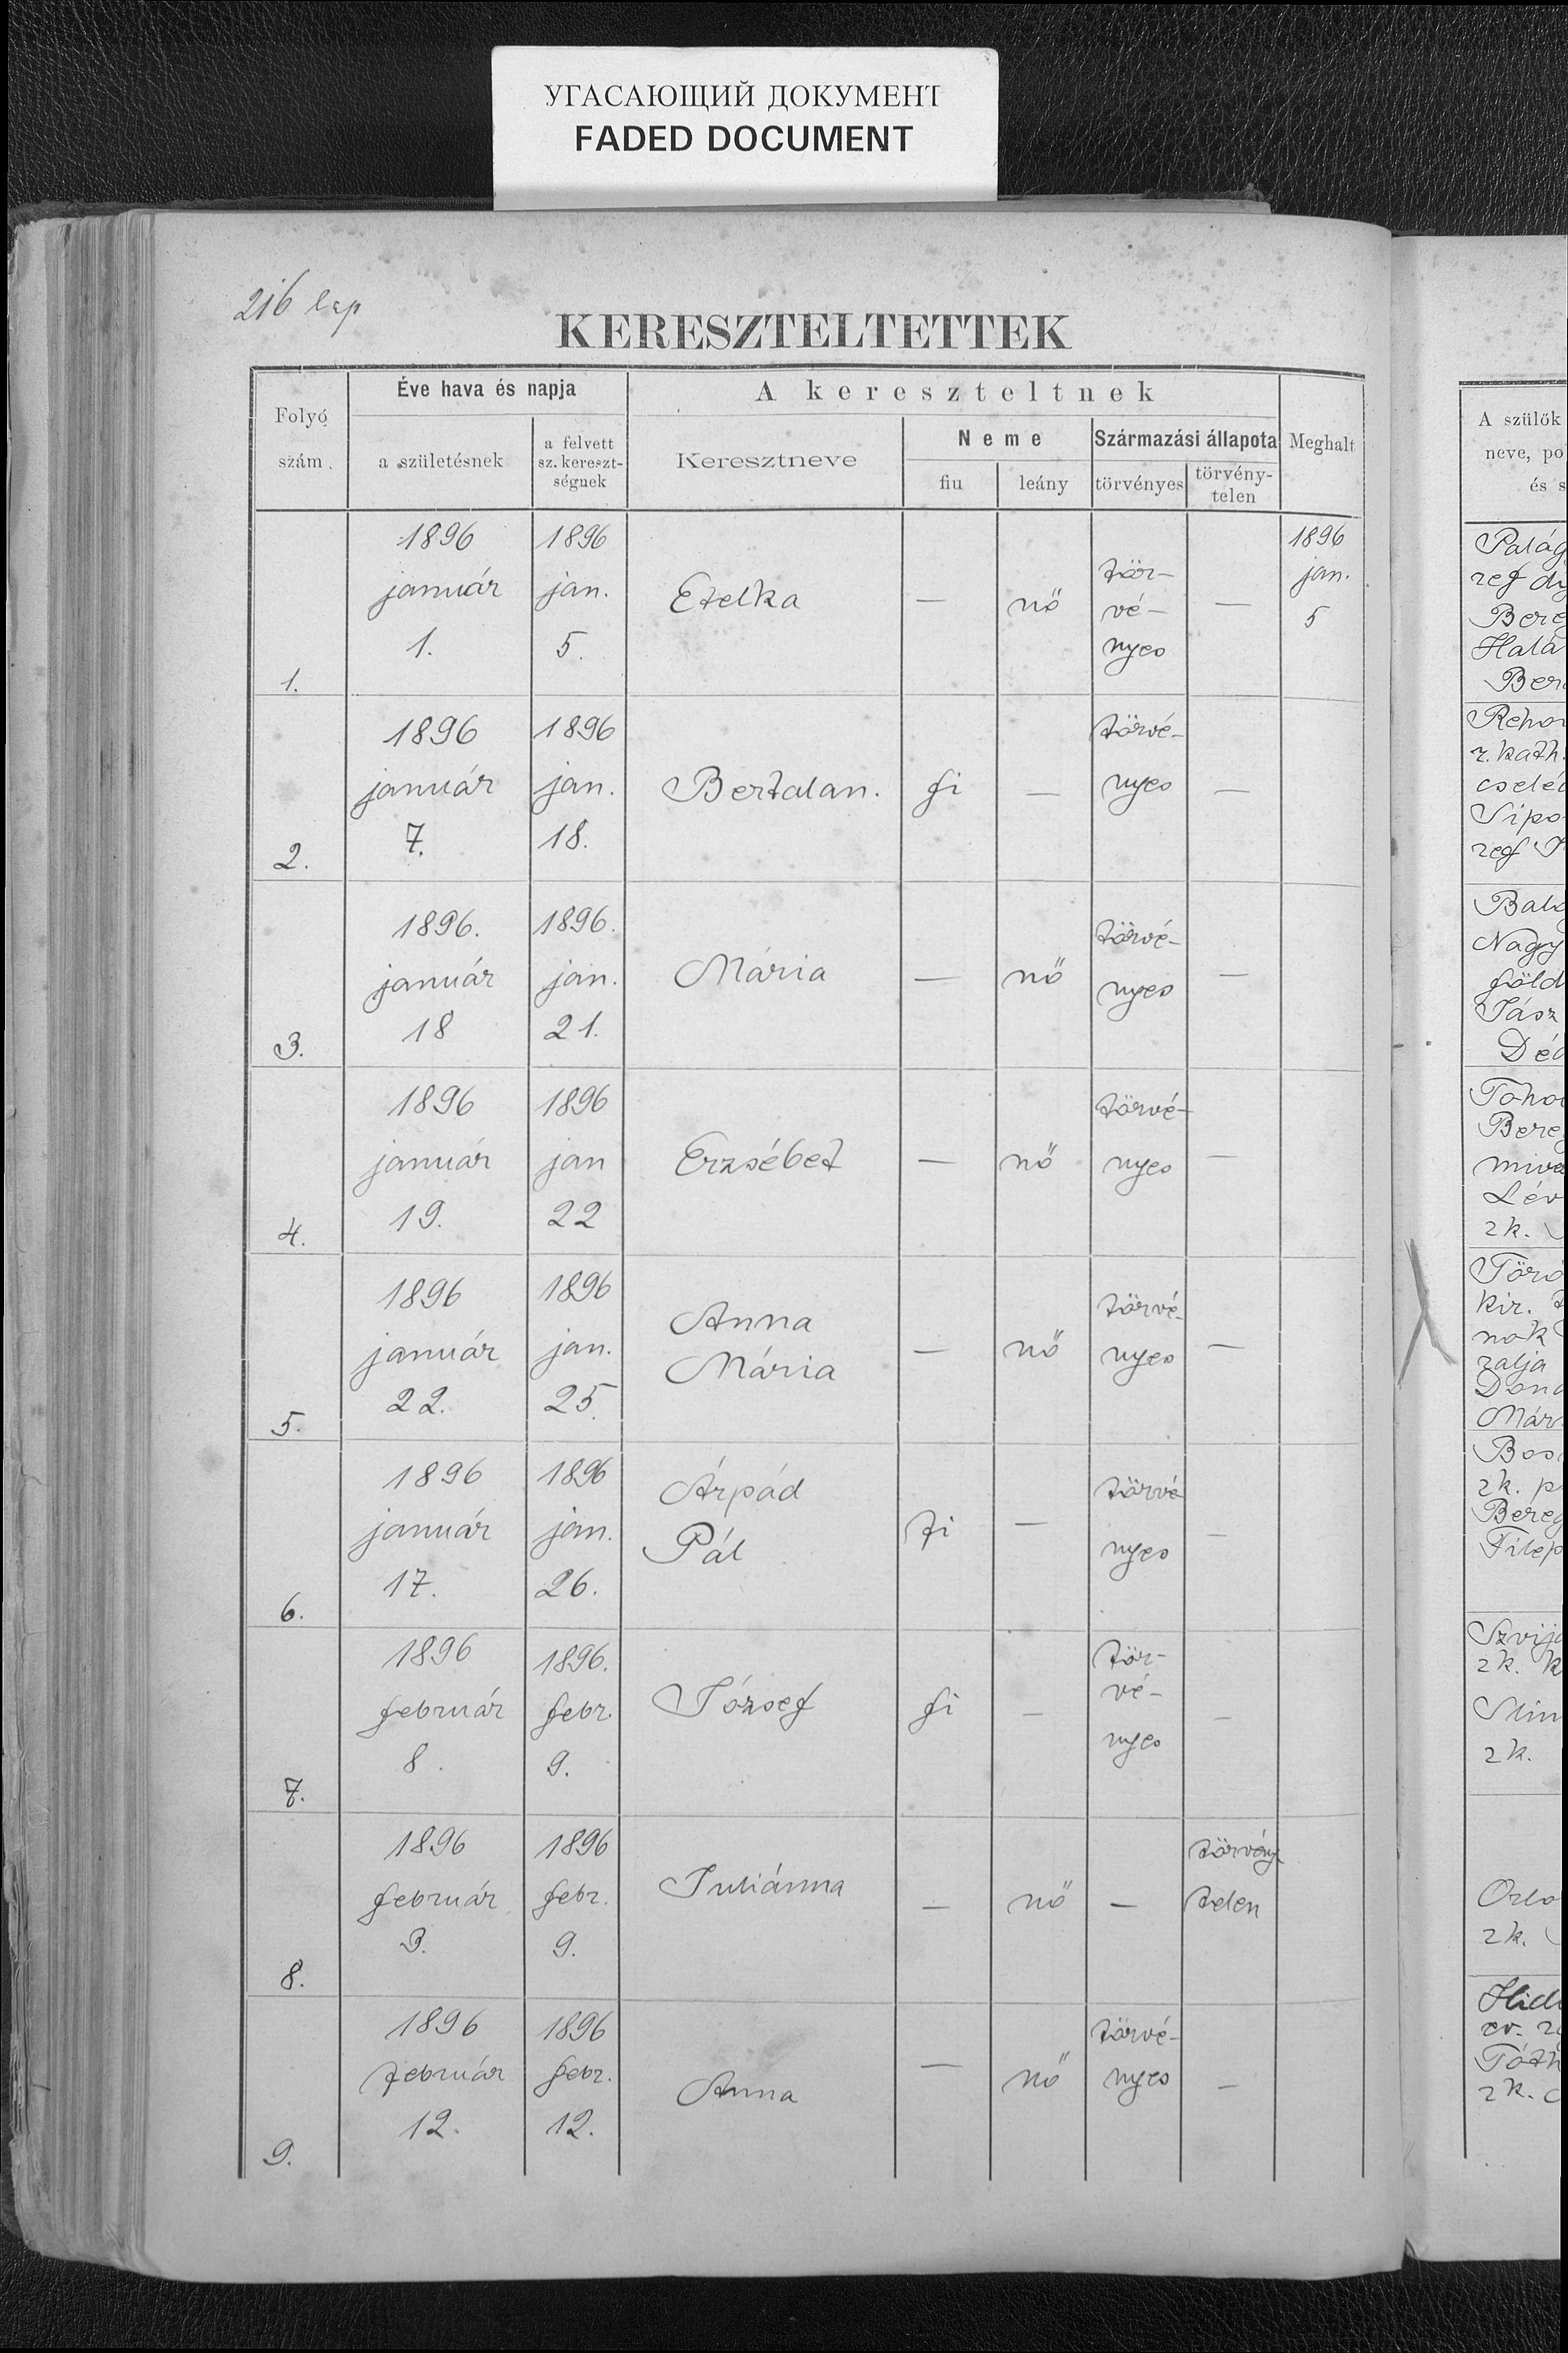 УГАСАЮЩИЙ ДОКУМЕНТ
FADED DOCUMENT
216 lap
KERESZTELTETTEK
Folyó szám.
Éve hava és napja
a születésnek
a felvett sz. kereszt-ségnek
A kereszteltnek
Keresztneve
Neme
fiu
leány
Származási állapota
törvényes
törvény-telen
Meghalt
1. 1896 január 1. 1896 jan. 5. Etelka — nő tör-vé-nyes — 1896 jan. 5
2. 1896 január 7. 1896 jan. 18. Bertalan. fi — törvé-nyes —
3. 1896. január 18 1896. jan. 21. Mária — nő törvé-nyes —
4. 1896 január 19. 1896 jan 22 Erzsébet — nő törvé-nyes —
5. 1896 január 22. 1896 jan. 25. Anna Mária — nő törvé-nyes —
6. 1896 január 17. 1896 jan. 26. Árpád Pál fi — törvé-nyes —
7. 1896 február 8. 1896. febr. 9. József fi — tör-vé-nyes —
8. 1896 február 3. 1896 febr. 9. Juliánna — nő — törvény-telen
9. 1896 február 12. 1896 febr. 12. Anna — nő törvé-nyes —
A szülők
neve, po
és s
Palág
ref
Bere
Hala
Ber
Reho
r. kath.
cseléd
Sipo
ref
Balo
Nagy
föld
Jász
Déd
Toho
Bere
mive
Lév
zk.
Törö
kir.
nok
zalja
Dona
Már
Bos
zk. p
Bereg
Filep
Szvij
zk. k
zk.
Orlo
zk.
Hid
ev.
Tóth
zk.